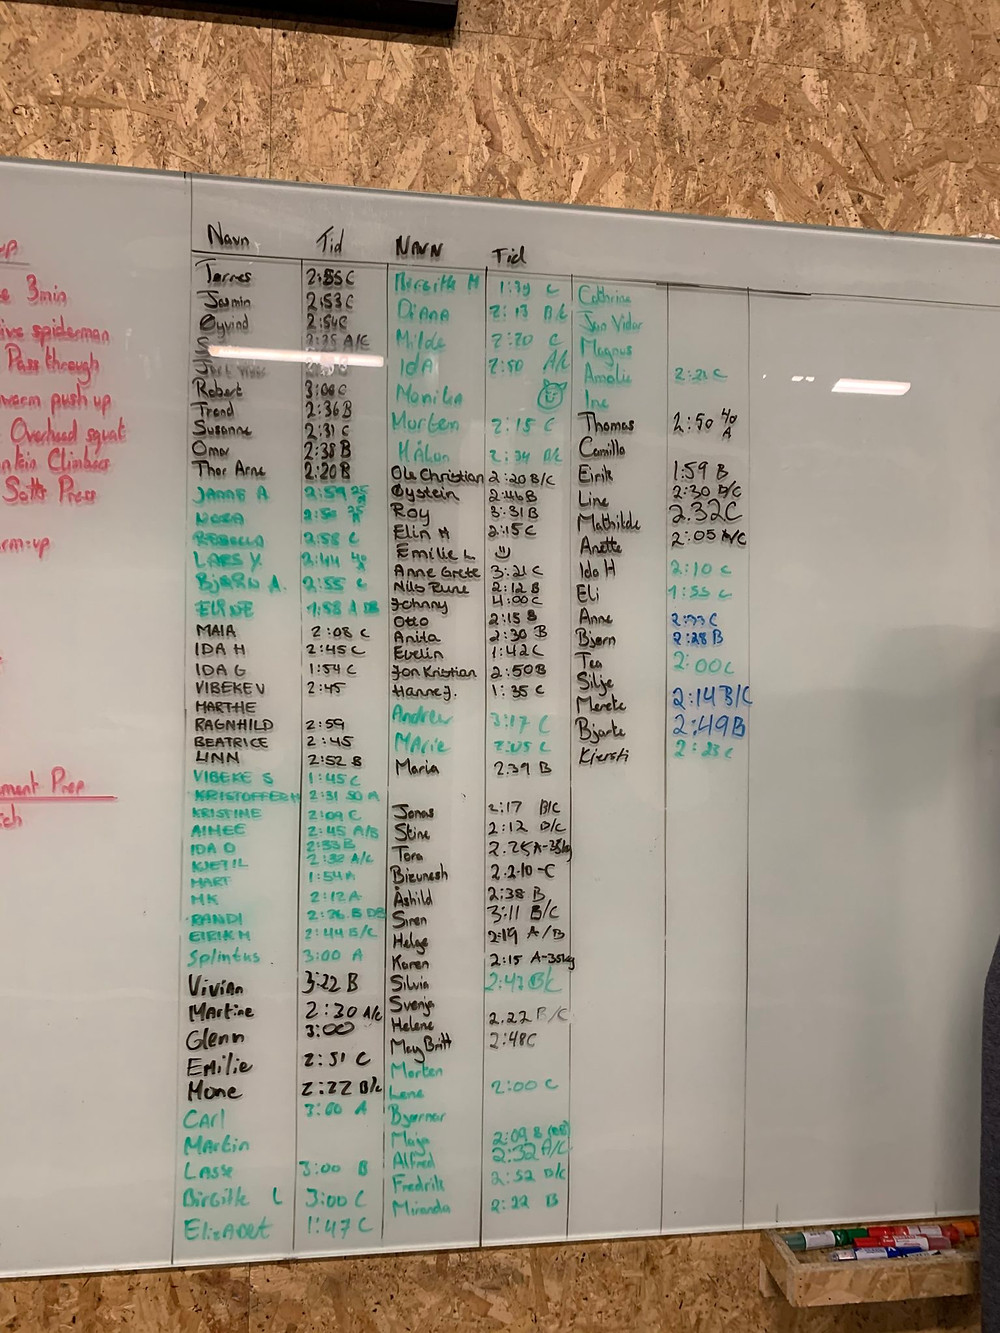 up
e 3min
ive spiderman
Pass through
worm push up
Overhead squat
ntain Climbers
Sotts Press
rm-up
ment Prep
ch
Navn Tid
Torres 2:55 C
Jasmin 2:53 C
Øyvind 2:54 C
2:25 A/C
Robert 3:00 C
Trond 2:36 B
Susanne 2:31 C
Omar 2:38 B
Thor Arne 2:20 B
JANNE A 2:59 25
NORA 2:50
REBECCA 2:58 C
LARS Y. 2:44 40
BJØRN A. 2:55 C
ELINE 1:58 A DB
MAIA 2:08 C
IDA H 2:45 C
IDA G 1:54 C
VIBEKE V 2:45
MARTHE
RAGNHILD 2:59
BEATRICE 2:45
LINN 2:52 B
VIBEKE S 1:45 C
KRISTOFFER H 2:31 50 A
KRISTINE 2:09 C
AIMEE 2:45 A/B
IDA O 2:33 B
KJETIL 2:32 A/C
MART 1:54 A
MK 2:12 A
RANDI 2:26 B DB
EIRIK M 2:44 B/C
Splintus 3:00 A
Vivian 3:22 B
Martine 2:30 A/C
Glenn 3:00
Emilie 2:51 C
Mone 2:22 B/C
Carl 3:00 A
Martin
Lasse 3:00 B
Birgitte L 3:00 C
Elisabet 1:47 C
NAVN Tid
Birgitte M 1:39 C
Diana 2:13 B/C
Milde 2:20 C
IdA 2:50 A/C
Monika
Morten 2:15 C
Håkon 2:34 B/C
Ole Christian 2:20 B/C
Øystein 2:46 B
Roy 3:31 B
Elin H 2:15 C
Emilie L :)
Anne Grete 3:21 C
Nils Rune 2:12 B
Johnny 4:00 C
Otto 2:15 B
Anita 2:30 B
Evelin 1:42 C
Jon Kristian 2:50 B
Hanne J. 1:35 C
Andrew 3:17 C
Marie 2:05 C
Maria 2:39 B
Jonas 2:17 B/C
Stine 2:12 B/C
Tora 2.25 A-35kg
Bizunesh 2.2.10-C
Åshild 2:38 B
Siren 3:11 B/C
Helge 2:19 A/B
Karen 2:15 A-35kg
Silvia 2:43 B/C
Svenja
Helene 2.22 B/C
May Britt 2:48 C
Morten
Lene 2:00 C
Bjørnar
Maja 2:09 B (DB)
Alfred 2:32 A/C
Fredrik 2:52 B/C
Miranda 2:22 B
Cathrine
Jan Vidar
Magnus
Amalie 2:21 C
Ine
Thomas 2:50 40 A
Camilla
Eirik 1:59 B
Line 2:30 B/C
Mathilde 2.32 C
Anette 2:05 A/C
Ida H 2:10 C
Eli 1:55 C
Anne 2:33 C
Bjørn 2:28 B
Tea 2:00 C
Silje
Merete 2:14 B/C
Bjarte 2:49 B
Kjersti 2:23 C